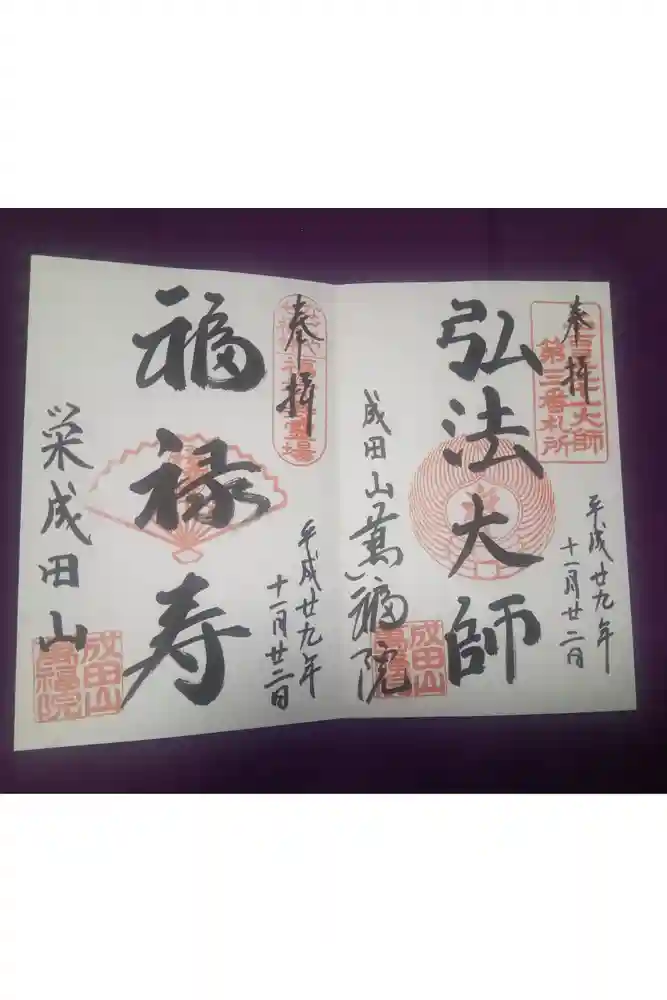 奉拝
第三番札所
弘法大師
平成廿九年
十一月廿二日
成田山萬福院
成田山
奉拝
福禄寿
平成廿九年
十一月廿二日
栄成田山
成田山
萬福院